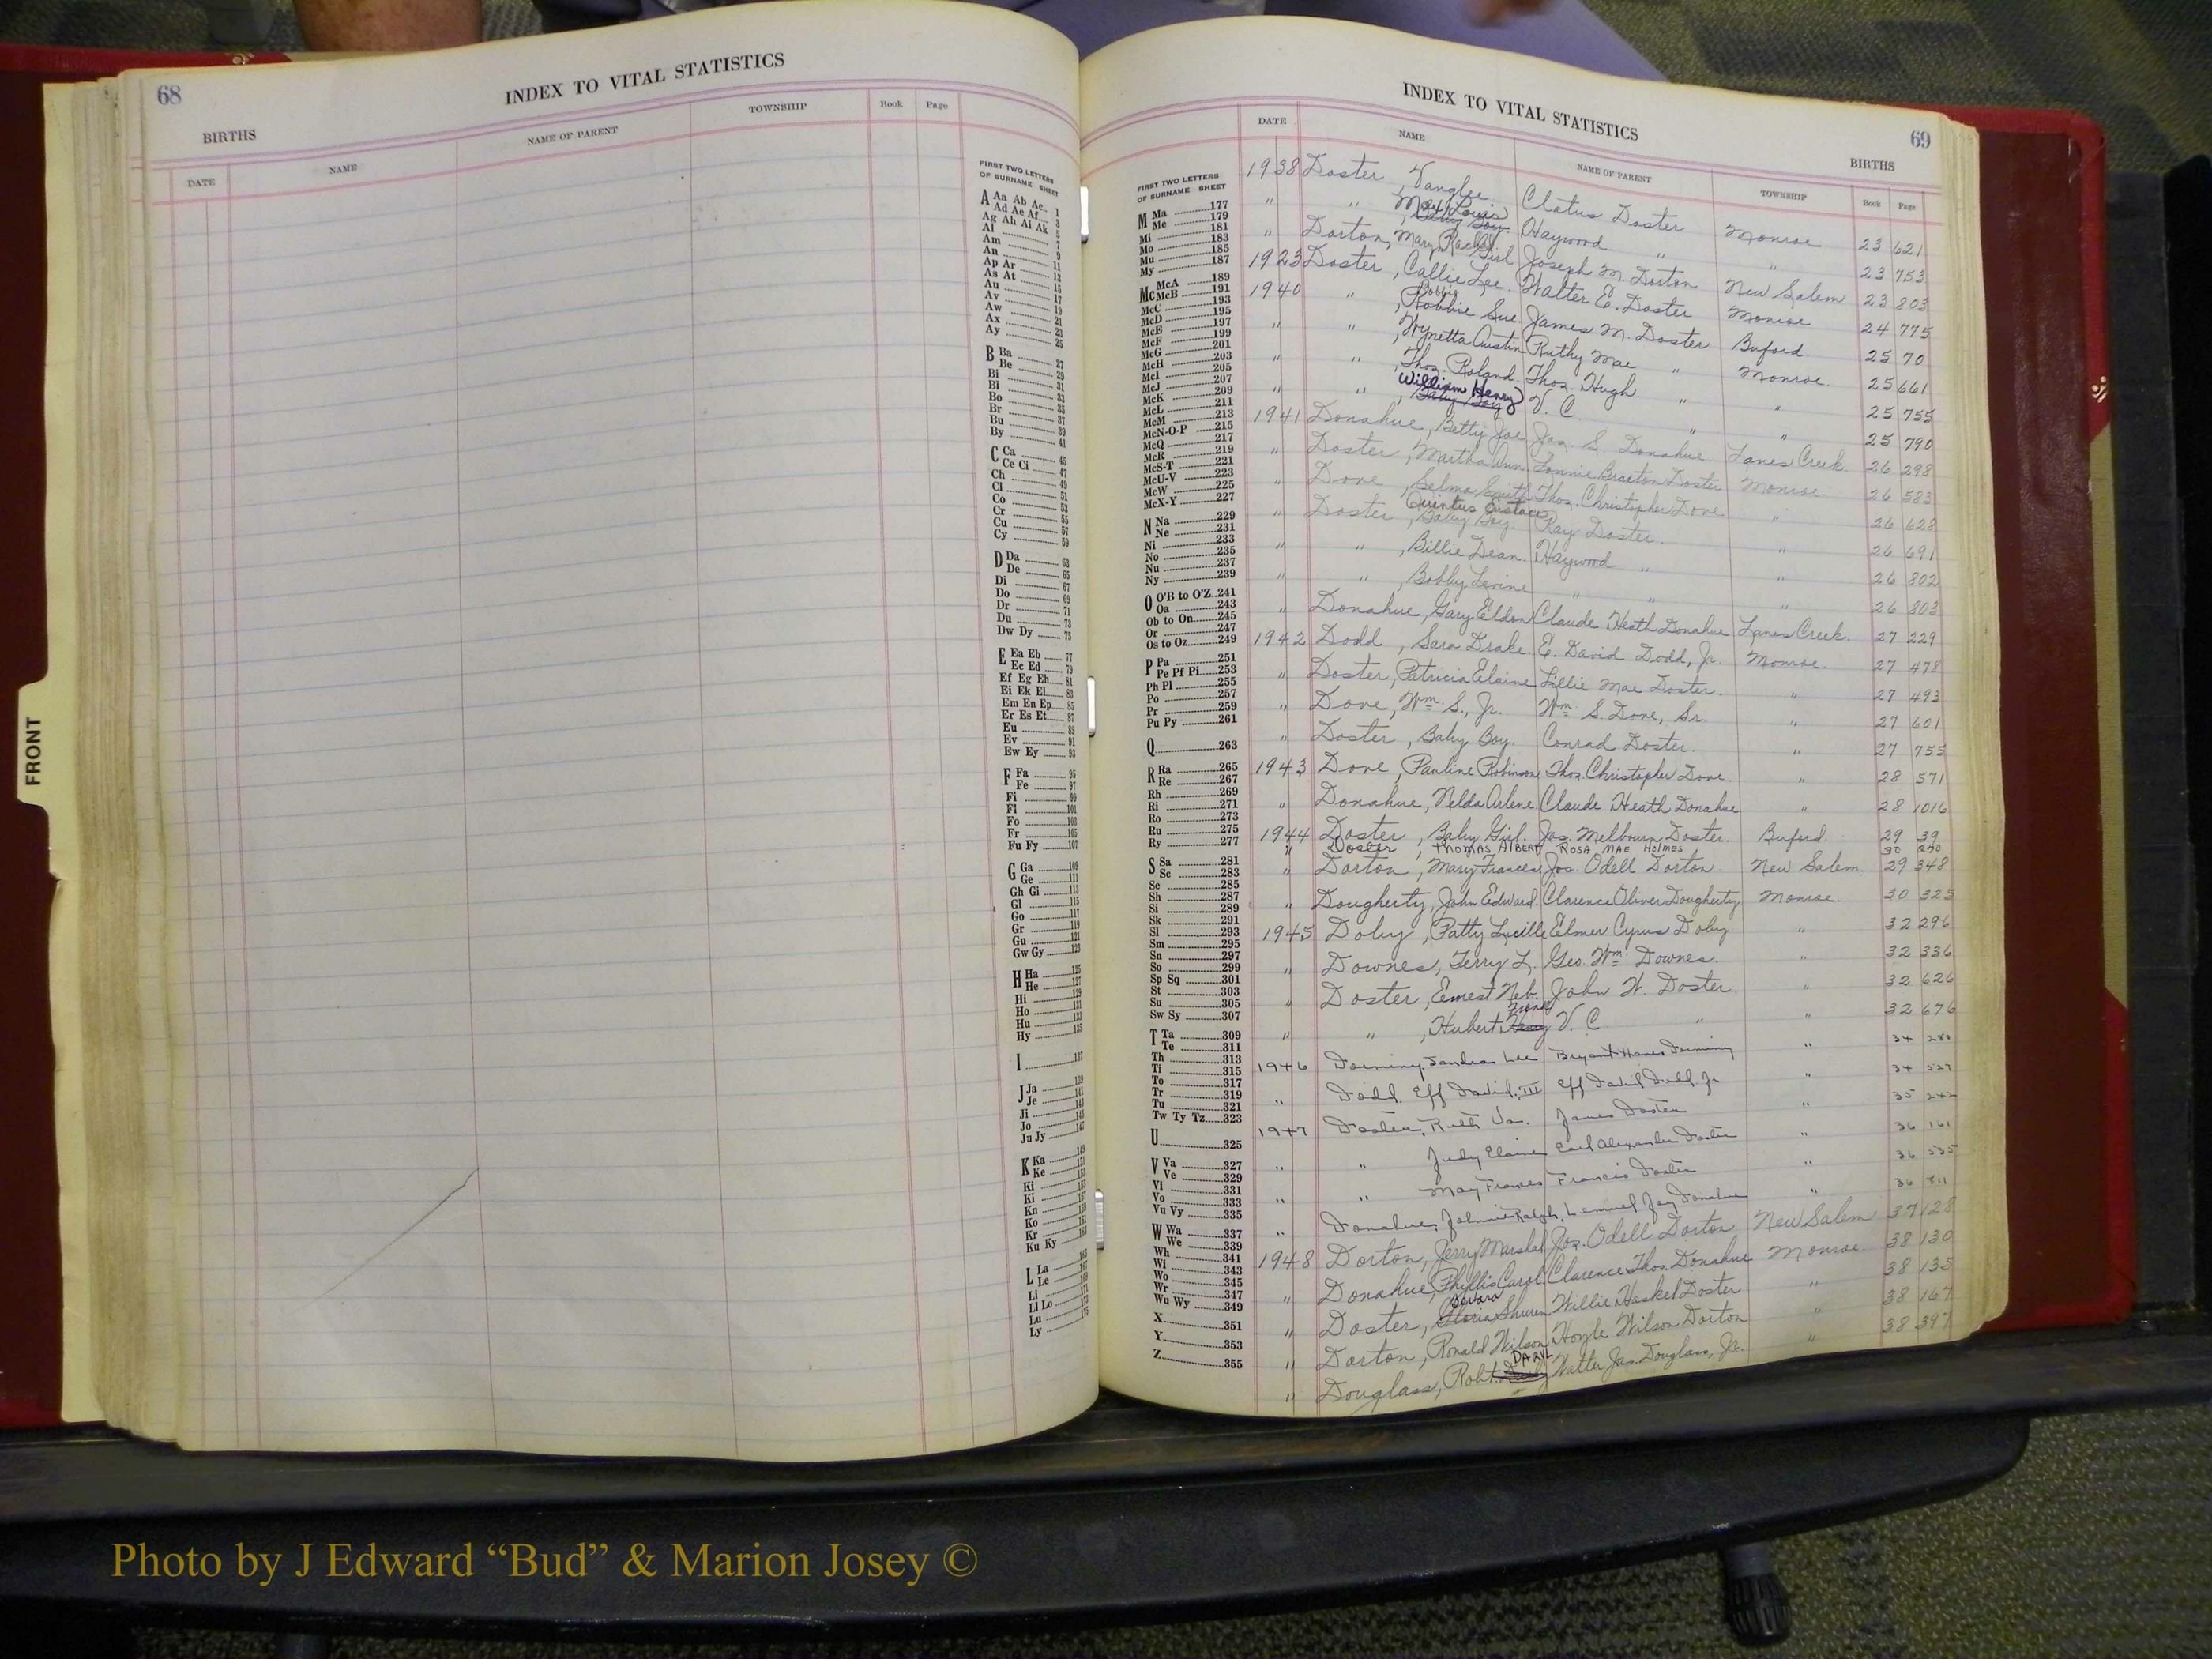 68
INDEX TO VITAL STATISTICS
BIRTHS
DATE NAME NAME OF PARENT TOWNSHIP Book Page
FIRST TWO LETTERS
OF SURNAME SHEET
A Aa Ab Ac 1
Ad Ae Af 3
Ag Ah Ai Ak 5
Al 7
Am 9
An 11
Ap Ar 13
As At 15
Au 17
Av 19
Aw 21
Ax 23
Ay 25
B Ba 27
Be 29
Bi 31
Bl 33
Bo 35
Br 37
Bu 39
By 41
C Ca 45
Ce Ci 47
Ch 49
Cl 51
Co 53
Cr 55
Cu 57
Cy 59
D Da 63
De 65
Di 67
Do 69
Dr 71
Du 73
Dw Dy 75
E Ea Eb 77
Ec Ed 79
Ef Eg Eh 81
Ei Ek El 83
Em En Ep 85
Er Es Et 87
Eu 89
Ev 91
Ew Ey 93
F Fa 95
Fe 97
Fi 99
Fl 101
Fo 103
Fr 105
Fu Fy 107
G Ga 109
Ge 111
Gh Gi 113
Gl 115
Go 117
Gr 119
Gu 121
Gw Gy 123
H Ha 125
He 127
Hi 129
Ho 131
Hu 133
Hy 135
I 137
J Ja 139
Je 141
Ji 143
Jo 145
Ju Jy 147
K Ka 149
Ke 151
Ki 153
Kl
Kn
Ko
Kr
Ku Ky
L La 165
Le 167
Li
Ll Lo
Lu
Ly
FRONT
INDEX TO VITAL STATISTICS
69
BIRTHS
DATE NAME NAME OF PARENT TOWNSHIP Book Page
FIRST TWO LETTERS
OF SURNAME SHEET
M Ma 177
Me 179
Mi 181
Mo 183
Mu 185
My 187
Mc McA 189
McB 191
McC 193
McD 195
McE 197
McF 199
McG 201
McH 203
McI 205
McJ 207
McK 209
McL 211
McM 213
McN-O-P 215
McQ 217
McR 219
McS-T 221
McU-V 223
McW 225
McX-Y 227
N Na 229
Ne 231
Ni 233
No 235
Nu 237
Ny 239
O O'B to O'Z 241
Oa 243
Ob to On 245
Or 247
Os to Oz 249
P Pa 251
Pe Pf Pi 253
Ph Pl 255
Po 257
Pr 259
Pu Py 261
Q 263
R Ra 265
Re 267
Rh 269
Ri 271
Ro 273
Ru 275
Ry 277
S Sa 281
Sc 283
Se 285
Sh 287
Si 289
Sk 291
Sl 293
Sm 295
Sn 297
So 299
Sp Sq 301
St 303
Su 305
Sw Sy 307
T Ta 309
Te 311
Th 313
Ti 315
To 317
Tr 319
Tu 321
Tw Ty Tz 323
U 325
V Va 327
Ve 329
Vi 331
Vo 333
Vu Vy 335
W Wa 337
We 339
Wh 341
Wi 343
Wo 345
Wr 347
Wu Wy 349
X 351
Y 353
Z 355
1938 Doster, Vanglee Cletus Doster Monroe 23 621
" " , Baby Boy Haywood " " 23 753
" Dorton, Mary Rachel Girl Joseph M. Dorton New Salem 23 803
1923 Doster, Callie Lee. Walter E. Doster Monroe 24 775
Bobbie
1940 " , Robbie Sue James M. Doster Buford 25 70
" " , Wynetta Austin Ruthy Mae " Monroe. 25 661
" " , Thos. Roland. Thos. Hugh " " 25 755
William Henry
" " , Baby Boy V. C. " " 25 790
1941 Donahue, Betty Joe Jas. S. Donahue. Lanes Creek. 26 298
" Doster, Martha Ann Lonnie Braxton Doster Monroe. 26 583
" Dove, Selma Smith Thos. Christopher Dove " 26 628
Quintus Eustace
" Doster, Baby Boy. Ray Doster. " 26 691
" " , Billie Dean. Haywood " " 26 802
" " , Bobby Levine " " " 26 803
" Donahue, Gary Eldon Claude Heath Donahue Lanes Creek. 27 229
1942 Dodd, Sara Drake. E. David Dodd, Jr. Monroe. 27 478
" Doster, Patricia Elaine Lillie Mae Doster. " 27 493
" Dove, Wm. S., Jr. Wm. S. Dove, Sr. " 27 601
" Doster, Baby Boy. Conrad Doster. " 27 755
1943 Dove, Pauline Robinson Thos. Christopher Dove. " 28 571
" Donahue, Nelda Arlene Claude Heath Donahue " 28 1016
1944 Doster, Baby Girl. Jas. Melbourn Doster. Buford. 29 39
" Doster, THOMAS ALBERT ROSA MAE HOLMES 30 290
" Dorton, Mary Frances Jos. Odell Dorton New Salem. 29 348
" Dougherty, John Edward. Clarence Oliver Dougherty Monroe. 30 325
1945 Doby, Patty Lucille Elmer Cyrus Doby " 32 296
" Downes, Terry L. Geo. Wm. Downes. " 32 336
" Doster, Ernest Neb. John W. Doster " 32 626
" " , Hubert Henry V. C " " 32 676
1946 Dorminy, Sandra Lee Bryant Hanes Dorminy " 34 280
" Dodd, Eff David, III Eff David Dodd, Jr " 34 527
1947 Doster, Ruth Va. James Doster " 35 242
" " Judy Elaine Earl Alexander Doster " 36 161
" " May Frances Francis Doster " 36 535
" Donahue, Johnnie Ralph. Lemmel Jay Donahue " 36 811
1948 Dorton, Jerry Marshal Jos. Odell Dorton New Salem 37 128
" Donahue, Phyllis Carol Clarence Thos. Donahue Monroe. 38 130
Barbara
" Doster, Gloria Shuren Willie Haskel Doster " 38 135
" Dorton, Ronald Wilson Hoyle Wilson Dorton " 38 167
DARYL
" Douglass, Robt. Walter Jas. Douglass, Jr. " 38 397
Photo by J Edward “Bud” & Marion Josey ©